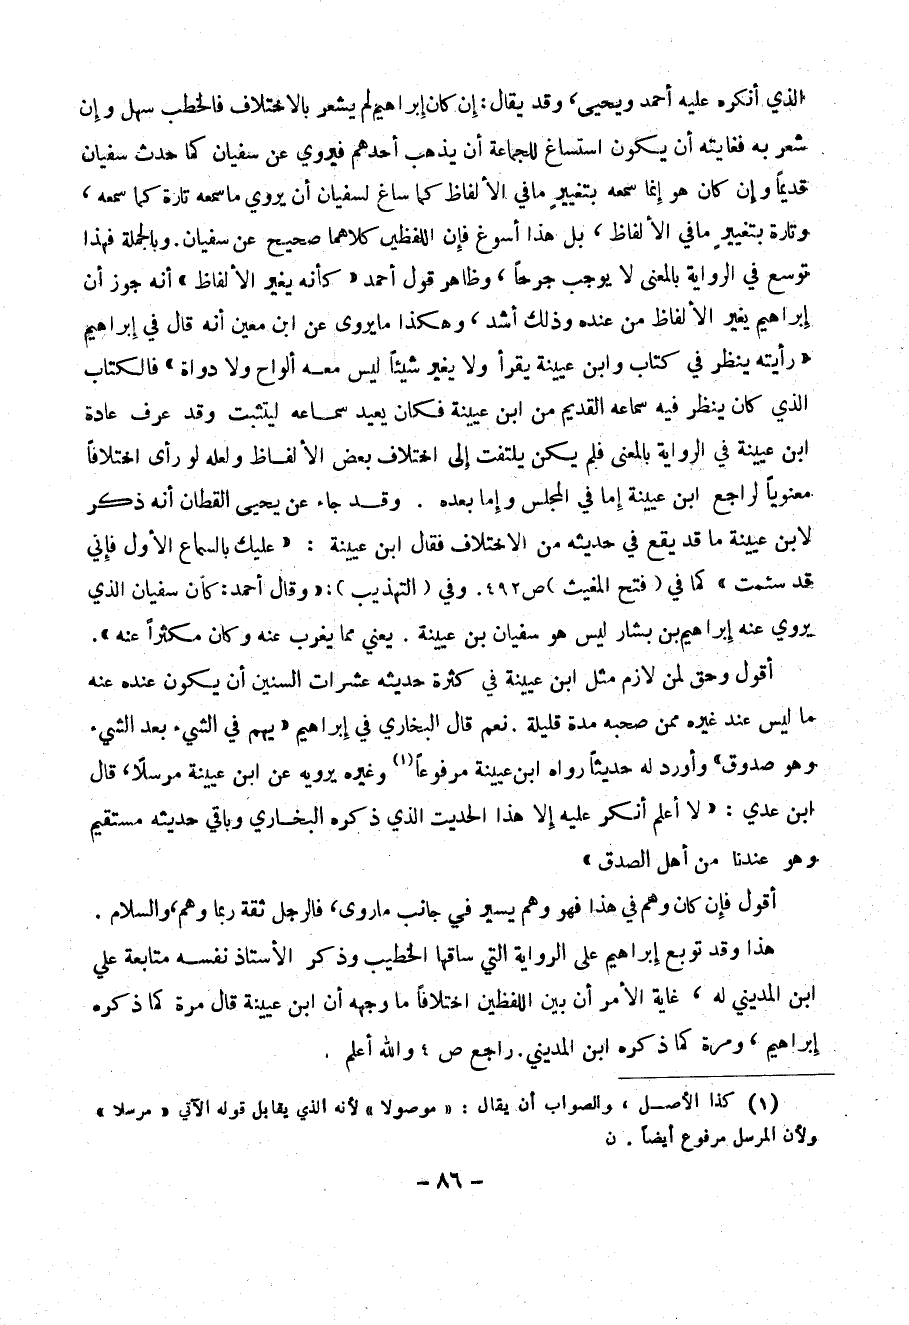 الذي أنكره عليه أحمد ويحيى، وقد يقال: إن كان إبراهيم لم يشعر بالاختلاف فالخطب سهل وإن
شعر به فغايته أن يكون استساغ للجماعة أن يذهب أحدهم فيروي عن سفيان كما حدث سفيان
قديماً وإن كان هو إنما سمعه بتغييرٍ مافي الألفاظ كما ساغ لسفيان أن يروي ماسمعه تارة كما سمعه ،
وتارة بتغييرٍ مافي الألفاظ ، بل هذا أسوغ فإن اللفظين كلاهما صحيح عن سفيان. وبالجملة فهذا
توسع في الرواية بالمعنى لا يوجب جرحاً ، وظاهر قول أحمد « كأنه يغير الألفاظ » أنه جوز أن
إبراهيم يغير الألفاظ من عنده وذلك أشد ، وهكذا مايروى عن ابن معين أنه قال في إبراهيم
« رأيته ينظر في كتاب وابن عيينة يقرأ ولا يغير شيئاً ليس معه ألواح ولا دواة » فالكتاب
الذي كان ينظر فيه سماعه القديم من ابن عيينة فكان يعيد سماعه ليتثبت وقد عرف عادة
ابن عيينة في الرواية بالمعنى فلم يكن يلتفت إلى اختلاف بعض الألفاظ ولعله لو رأى اختلافاً
معنوياً لراجع ابن عيينة إما في المجلس وإما بعده . وقد جاء عن يحيى القطان أنه ذكر
لابن عيينة ما قد يقع في حديثه من الاختلاف فقال ابن عيينة : « عليك بالسماع الأول فإني
قد سئمت » كما في ( فتح المغيث ) ص ٤٩٢. وفي ( التهذيب ): « وقال أحمد: كأن سفيان الذي
يروي عنه إبراهيم بن بشار ليس هو سفيان بن عيينة . يعني مما يغرب عنه وكان مكثراً عنه ».
أقول وحق لمن لازم مثل ابن عيينة في كثرة حديثه عشرات السنين أن يكون عنده عنه
ما ليس عند غيره ممن صحبه مدة قليلة . نعم قال البخاري في إبراهيم « يهم في الشيء بعد الشيء
وهو صدوق » وأورد له حديثاً رواه ابن عيينة مرفوعاً(١) وغيره يرويه عن ابن عيينة مرسلًا، قال
ابن عدي : « لا أعلم أنكر عليه إلا هذا الحديث الذي ذكره البخاري وباقي حديثه مستقيم
وهو عندنا من أهل الصدق »
أقول فإن كان وهم في هذا فهو وهم يسير في جانب ماروى، فالرجل ثقة ربما وهم، والسلام .
هذا وقد توبع إبراهيم على الرواية التي ساقها الخطيب وذكر الأستاذ نفسه متابعة علي
ابن المديني له ، غاية الأمر أن بين اللفظين اختلافاً ما وجهه أن ابن عيينة قال مرة كما ذكره
إبراهيم ، ومرة كما ذكره ابن المديني. راجع ص ٤ والله أعلم .
(١) كذا الأصل ، والصواب أن يقال : « موصولا » لأنه الذي يقابل قوله الآتي « مرسلا »
ولأن المرسل مرفوع أيضاً . ن
- ٨٦ -